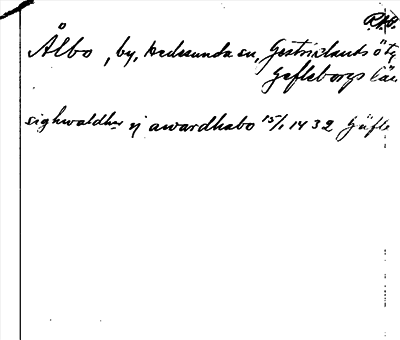 RAP.
Ålbo, by, Hedesunda sn, Gestriklands ö tg
Gefleborgs län
sighwaldher ij awardhabo 15/1 1432 Gäfle